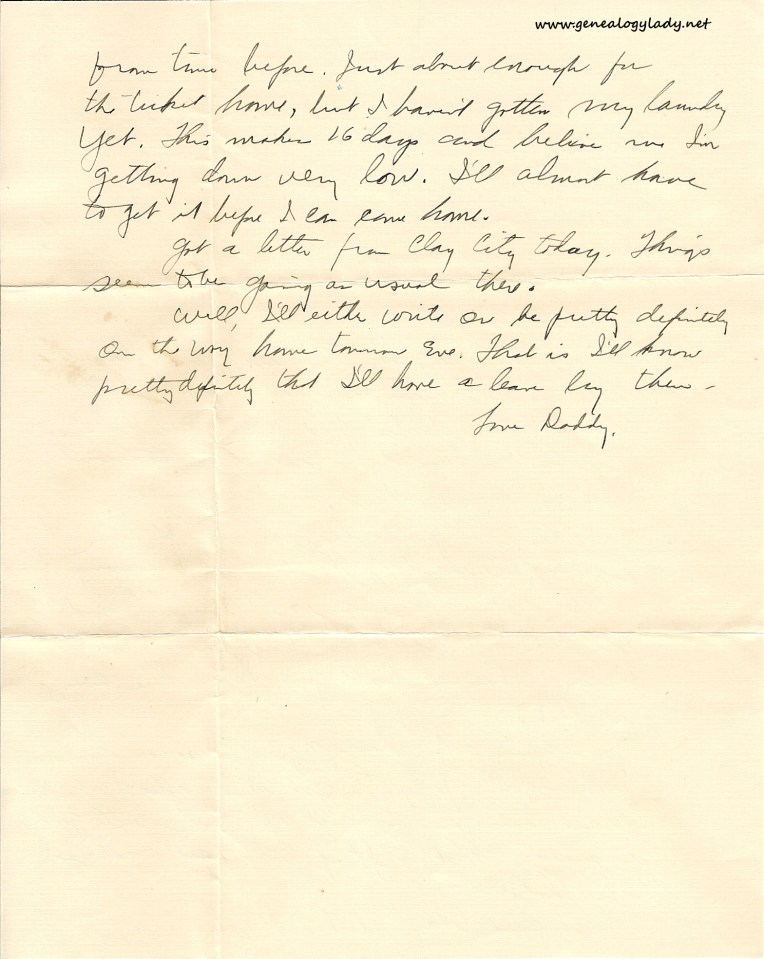 www.genealogylady.net
from time before. Just about enough for
the ticket home, but I haven't gotten my laundry
yet. This makes 16 days and believe me I'm
getting down very low. I'll almost have
to get it before I can come home.
Got a letter from Clay City today. Things
seem to be going as usual there.
Well, I'll either write or be pretty definitely
on the way home tomorrow Eve. That is I'll know
pretty definitely that I'll have a leave by then –
Love Daddy.